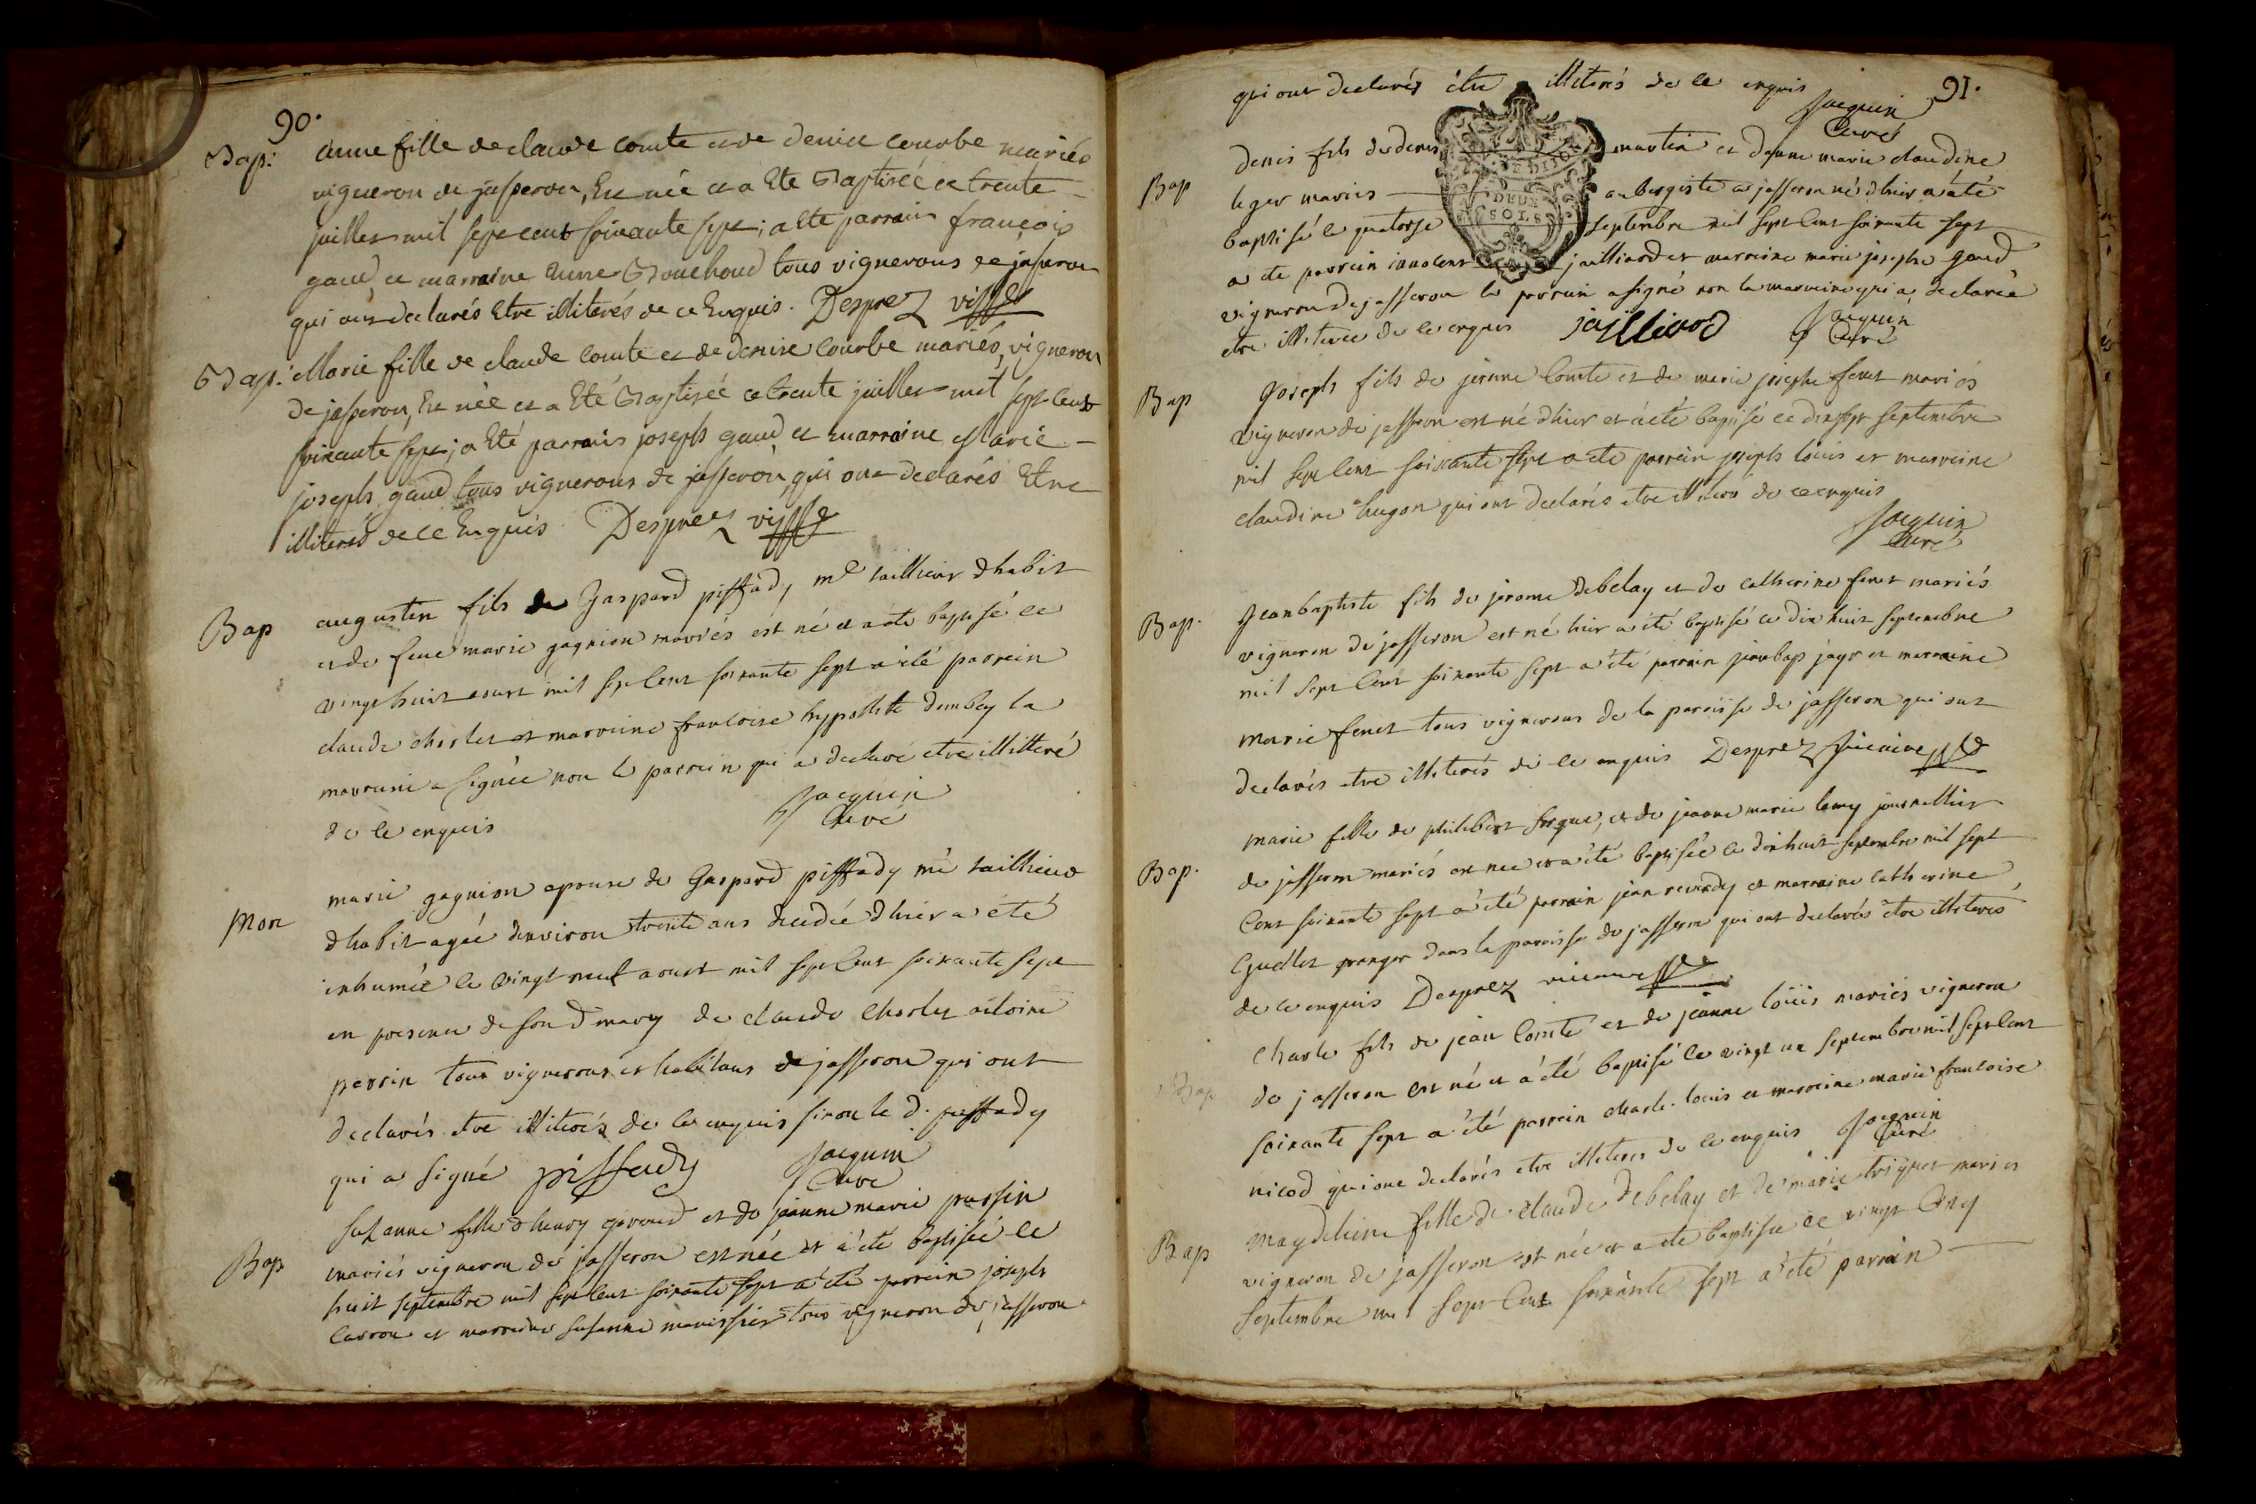 90.
Bap: anne fille de claude comte et de denise courbe mariés
vigneron de jasseron, Est née et a Eté Baptisée ce trente
juillet mil sept cent soixante sept; a Eté parrain françois
gaud et marraine anne Bouchoud tous vignerons de jasseron
qui ont declarés Etre illiterés de ce Enquis. Desprez
Bap: Marie fille de claude comte et de denise courbe mariés, vigneron
de jasseron, Est née et a Eté Baptisée ce trente juillet mil sept cent
soixante sept; a Eté parrain joseph gaud et marraine Marie
joseph gaud tous vignerons de jasseron, qui ont declarés Etre
illiterés de ce Enquis Desprez
Bap augustin fils de Gaspard piffady me taillieur dhabit
et de feue marie gagnion mariés est né et a été baptisé le
vingt huit aoust mil sept cent soixante sept a été parrein
claude charles et marreine francoise hyppolite la
marreine a signée non le parrein qui a declaré etre illitteré
de ce enquis Jacquin
Curé
Mor marie gagnion epouse de Gaspard piffady me taillieur
dhabit agée denviron trente ans decedée dhier a été
inhumée le vingt neuf aoust mil sept cent soixante sept
en presence de son d mary de claude charles antoine
perrin tous vignerons et habitans de jasseron qui ont
declarés etre illiterés de ce enquis sinon le d. piffady
qui a signé piffady Jacquin
Curé
Bap Suzanne fille dhenry et de jeanne marie
mariés vigneron de jasseron est née et a été baptisée le
huit septembre mil sept cent soixante sept a été parrein joseph
et marreine susanne tous vigneron de jasseron
91.
qui ont declarés être illiterés de ce enquis Jacquin
Curé
Bap denis fils de denis martin et de jeanne marie claudine
leger mariés aubergiste a jasseron né dhier a été
baptisé le quatorze septembre mil sept cent soixante sept
DEUX
SOLS
a été parrein innocent jailliard et marreine marie josephe gaud
vigneron de jasseron le parrein a signé non la marreine qui a declarée
etre illiterée de ce enquis jailliard Jacquin
Curé
Bap Joseph fils de jerome Comte et de marie josephe feret mariés
vigneron de jasseron est né dhier et a été baptisé ce dix sept septembre
mil sept cent soixante sept a été parrein joseph louis et marreine
claudine hugon qui ont declarés etre illiterés de ce enquis
Jacquin
Curé
Bap. Jean baptiste fils de jerome debelay et de catherine feret mariés
vigneron de jasseron est né hier a été baptisé ce dix huit septembre
mil sept cent soixante sept a été parrain jean bap jayr et marraine
marie feret tous vignerons de la paroisse de jasseron qui ont
declarés etre illiterés de ce enquis Desprez vicaire
Bap. marie fille de philibert et de jeanne marie journallier
de jasseron mariés est née et a été baptisée ce dix huit septembre mil sept
cent soixante sept a été parrain jean et marraine catherine
granger dans la paroisse de jasseron qui ont declarés être illiterés
de ce enquis Desprez vicaire
Bap Charle fils de jean Comte et de jeanne louis mariés vigneron
de jasseron est né et a été baptisé le vingt un septembre mil sept cent
soixante sept a été parrein charle louis et marreine marie francoise
nicod qui ont declarés etre illiteres de ce enquis Jacquin
Curé
Bap magdeleine fille de claude debelay et de marie mariés
vigneron de jasseron est née et a été baptisée ce vingt cinq
septembre mil sept cent soixante sept a été parrain